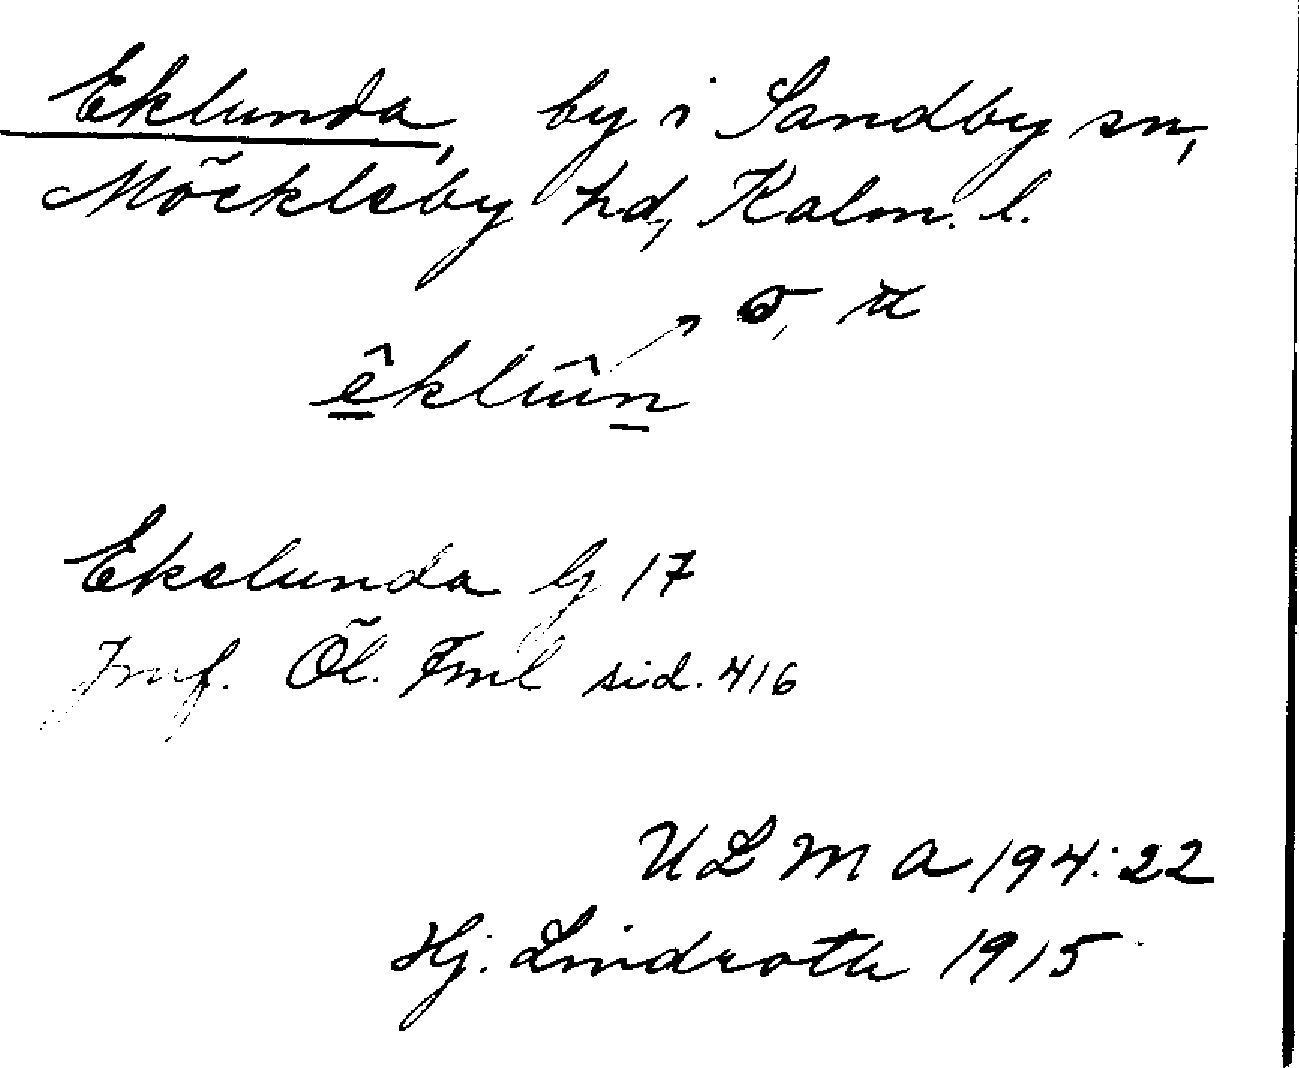 Eklunda, by i Sandby sn,
Möckleby hd, Kalm. l.
êklûn
Ekelunda G 17
Jmf. Öl. Fml sid. 416
ULMA 194:22
Hj. Lindroth 1915